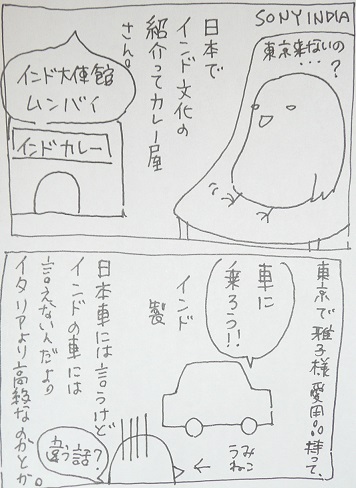 SONY INDIA
東京来ないの
…?
日本で
インド文化の
紹介ってカレー屋
さん。
インド大使館
ムンバイ
インドカレー
東京で雅子様愛用品持って、
車に
乗ろう!!
インド
製
日本車には言うけど
インドの車には
言えないんだよ。
イタリアより高級なのかとか。
←うみ
ねこ
違う話?